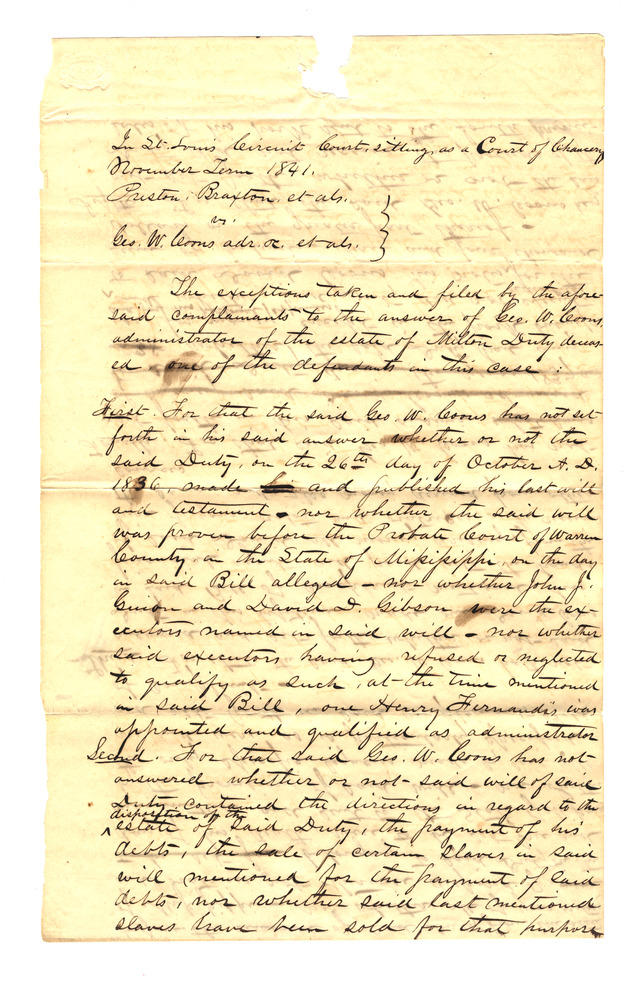 In St. Louis Circuit Court, sitting, as a Court of Chancery
November Term 1841.
Preston, Braxton, et als.
vs.
Geo. W. Coons adr. &c. et als.
The exceptions taken and filed by the afore-
said complainants to the answer of Geo. W. Coons,
administrator of the estate of Milton Duty deceas-
ed one of the defendants in this case :
First. For that the said Geo. W. Coons has not set
forth in his said answer whether or not the
said Duty, on the 26th day of October A. D.
1836, made and published his last will
and testament - nor whether the said will
was proven before the Probate Court of Warren
County in the State of Missisippi, on the day
in said Bill alleged - nor whether John J.
Guion and David D. Gibson were the ex-
ecutors named in said will - nor whether
said executors having refused or neglected
to qualify as such, at the time mentioned
in said Bill, one Henry Fernandis was
appointed and qualified as administrator
Second. For that said Geo. W. Coons has not
answered whether or not said will of said
Duty contained the directions in regard to the
disposition of the
^ estate of said Duty, the payment of his
debts, the sale of certain slaves in said
will mentioned for the payment of said
debts, nor whether said last mentioned
slaves have been sold for that purpose